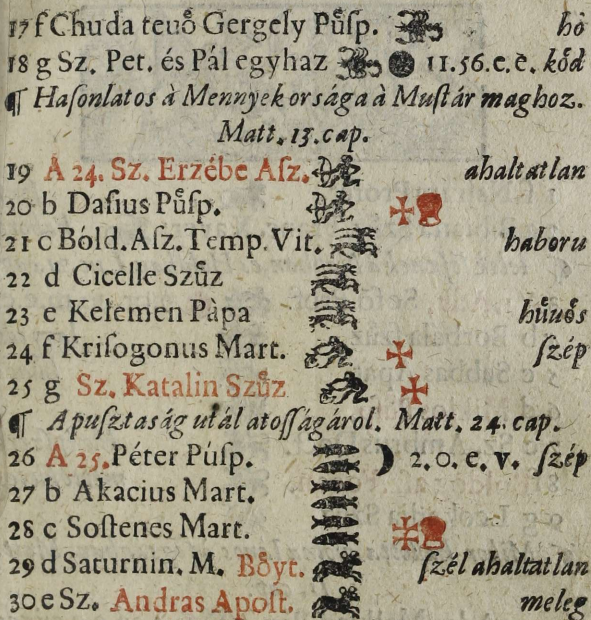 17 f Chuda teuő Gergely Puͤſp. hó
18 g Sz. Pet. és Pál egyhaz 11.56.e.e. kőd
¶ Haſonlatos à Mennyek orsága à Muſtár maghoz.
Matt. 13. cap.
19 A 24. Sz. Erzébe Aſz. ahaltatlan
20 b Daſius Puͤſp.
21 c Bóld. Aſz. Temp. Vit. haboru
22 d Cicelle Szuͤz
23 e Kelemen Pàpa huͤuo̊s
24 f Kriſogonus Mart. ſzép
25 g Sz. Katalin Szuͤz
¶ A puſztaság utálatoſſágárol. Matt. 24. cap.
26 A 25. Péter Puſp. 2. 0. e. v. ſzép
27 b Akacius Mart.
28 c Soſtenes Mart.
29 d Saturnin. M. Bo̊yt. ſzél ahaltatlan
30 e Sz. Andras Apoſt. meleg